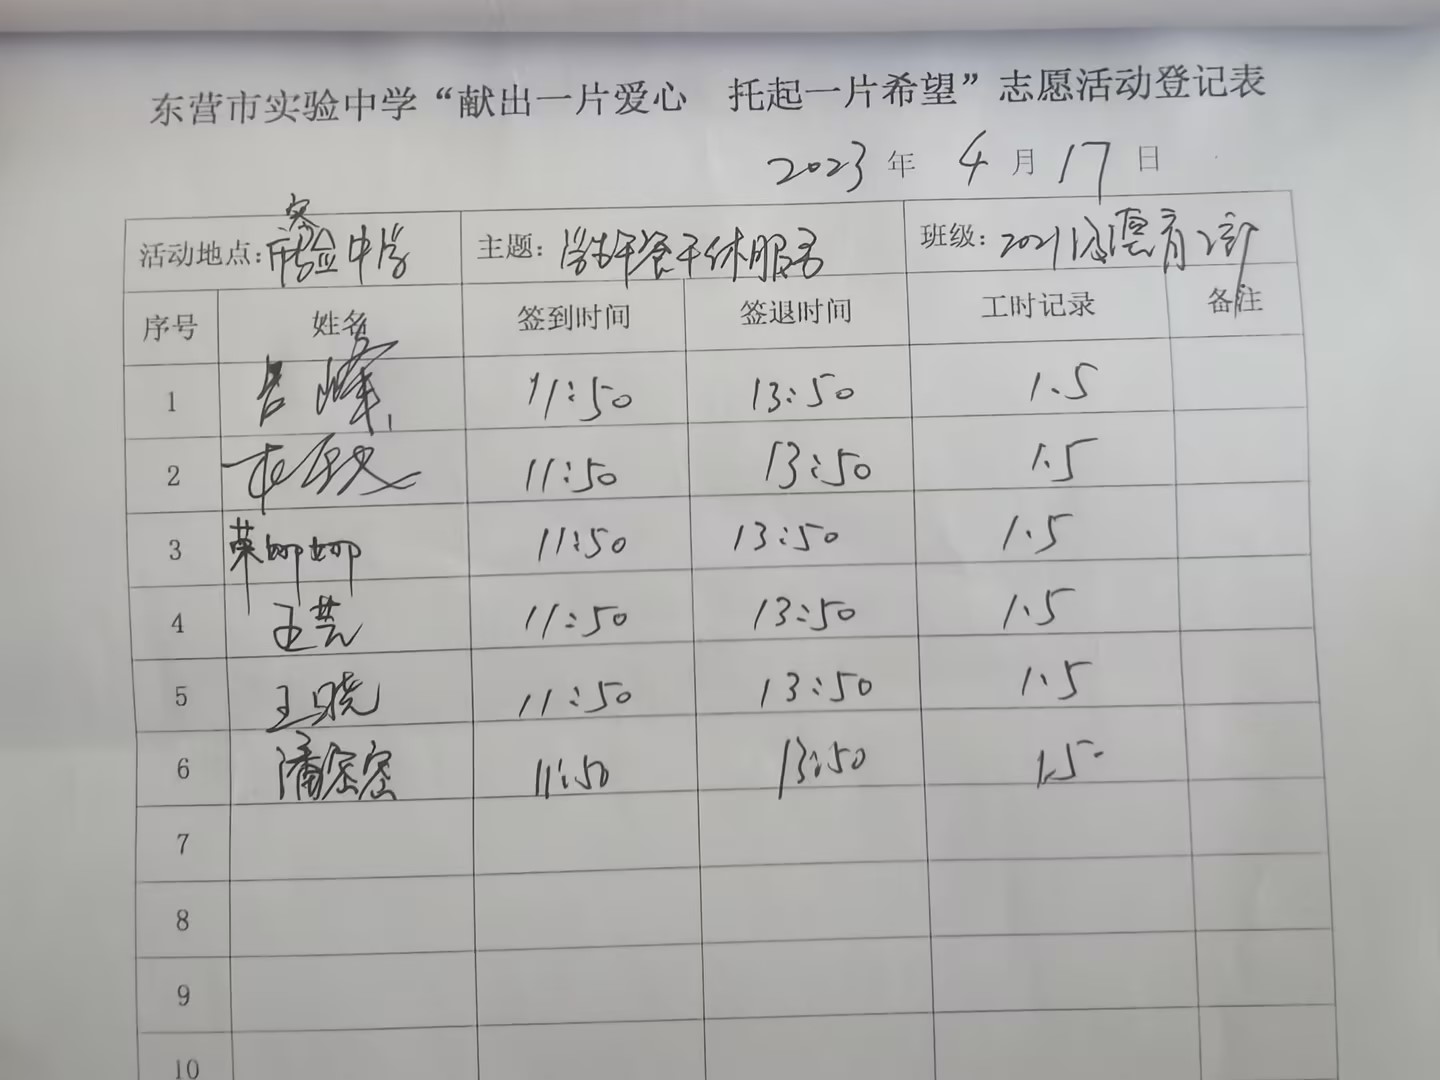 东营市实验中学“献出一片爱心 托起一片希望”志愿活动登记表
2023 年 4 月 17 日
活动地点：市实验中学 主题：学生午餐午休服务 班级：2021级德育2部
序号 姓名 签到时间 签退时间 工时记录 备注
1 吕峰 11:50 13:50 1.5
2 11:50 13:50 1.5
3 荣娜娜 11:50 13:50 1.5
4 王芸 11:50 13:50 1.5
5 王晓 11:50 13:50 1.5
6 潘密密 11:50 13:50 1.5
7
8
9
10